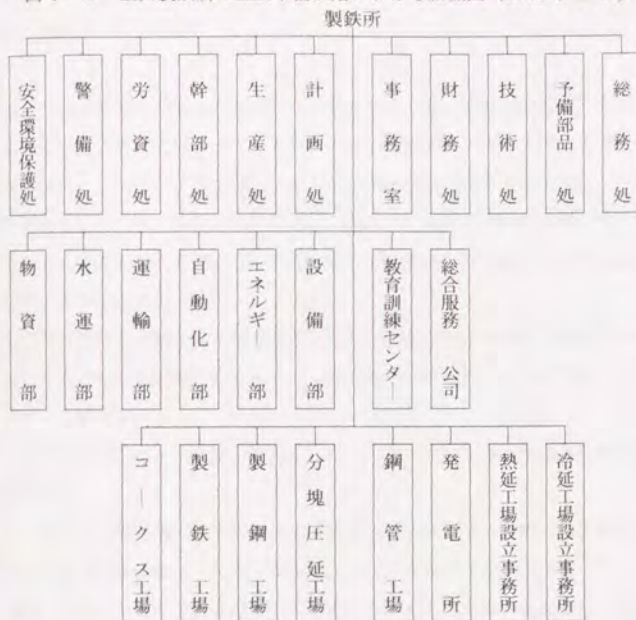 製鉄所
安全環境保護処
警備処
労資処
幹部処
生産処
計画処
事務室
財務処
技術処
予備部品処
総務処
物資部
水運部
運輸部
自動化部
エネルギー部
設備部
教育訓練センター
総合服務公司
コークス工場
製鉄工場
製鋼工場
分塊圧延工場
鋼管工場
発電所
熱延工場設立事務所
冷延工場設立事務所